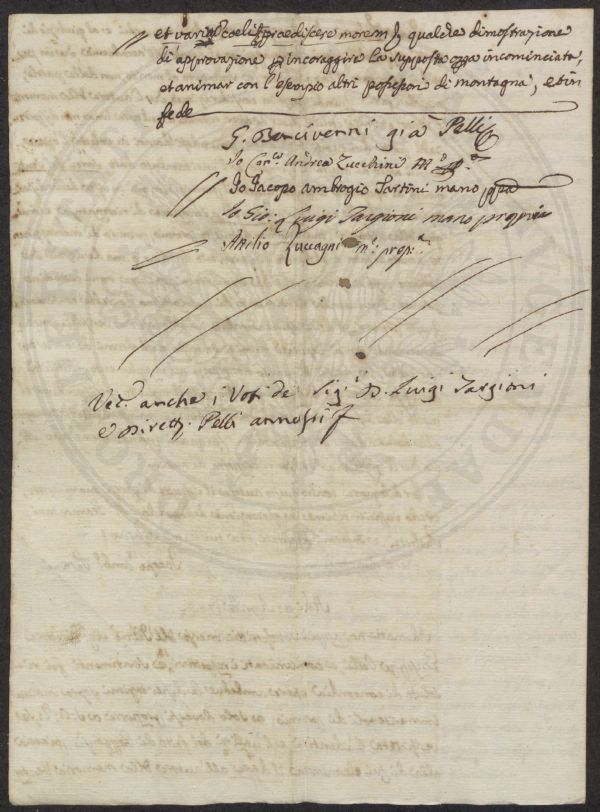 et varium coeli praediscere morem) qualche dimostrazione
di approvazione p incoraggire la supposta opa incominciata,
et animar con l'esempio altri possessori di montagna, et in
fede
G. Bencivenni già Pelli
Io Can.co Andrea Zucchini m.o pp.a
Io Jacopo Ambrogio Tartini mano ppa
Io Gio: Luigi Targioni mano propria
Attilio Zuccagni m.o prop.a
Ved. anche i Voti de Sig.i D. Luigi Targioni
e Dirett. Pelli annessi